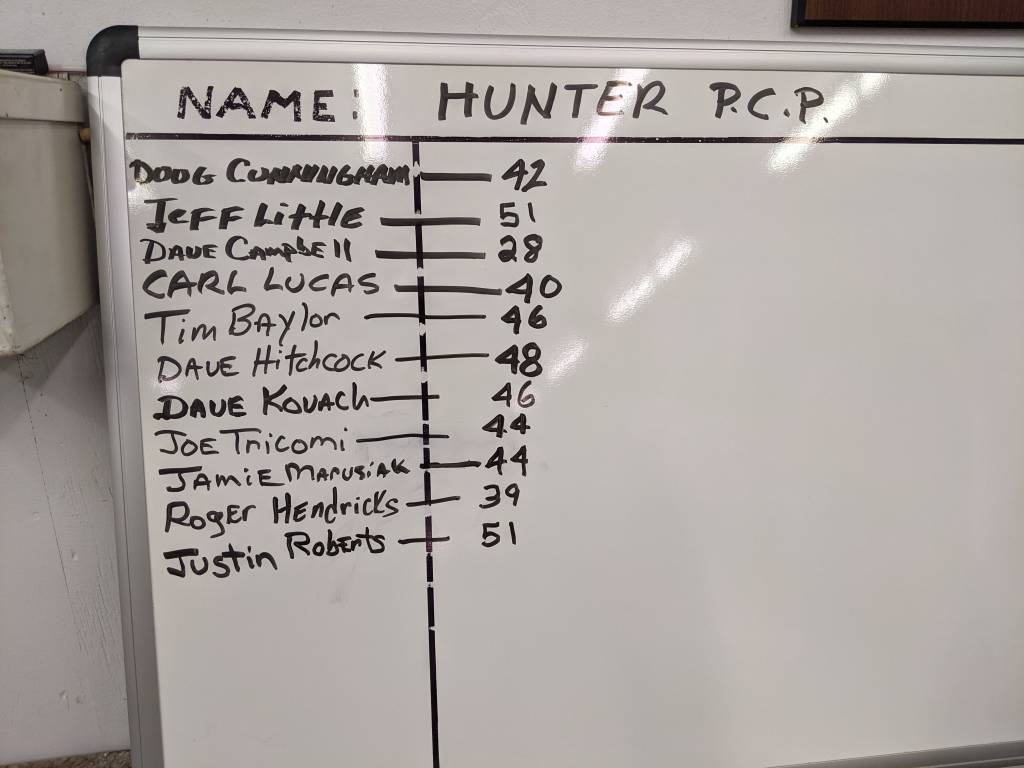 NAME: HUNTER P.C.P.
DOUG CUNNINGHAM — 42
JEFF LittlE — 51
DAVE CAMpbEll — 28
CARL LUCAS — 40
Tim BAylor — 46
DAVE Hitchcock — 48
DAVE KOVACh — 46
JOE Tricomi — 44
JAMiE MARUSiAK — 44
RogER HENdricks — 39
Justin RobERts — 51